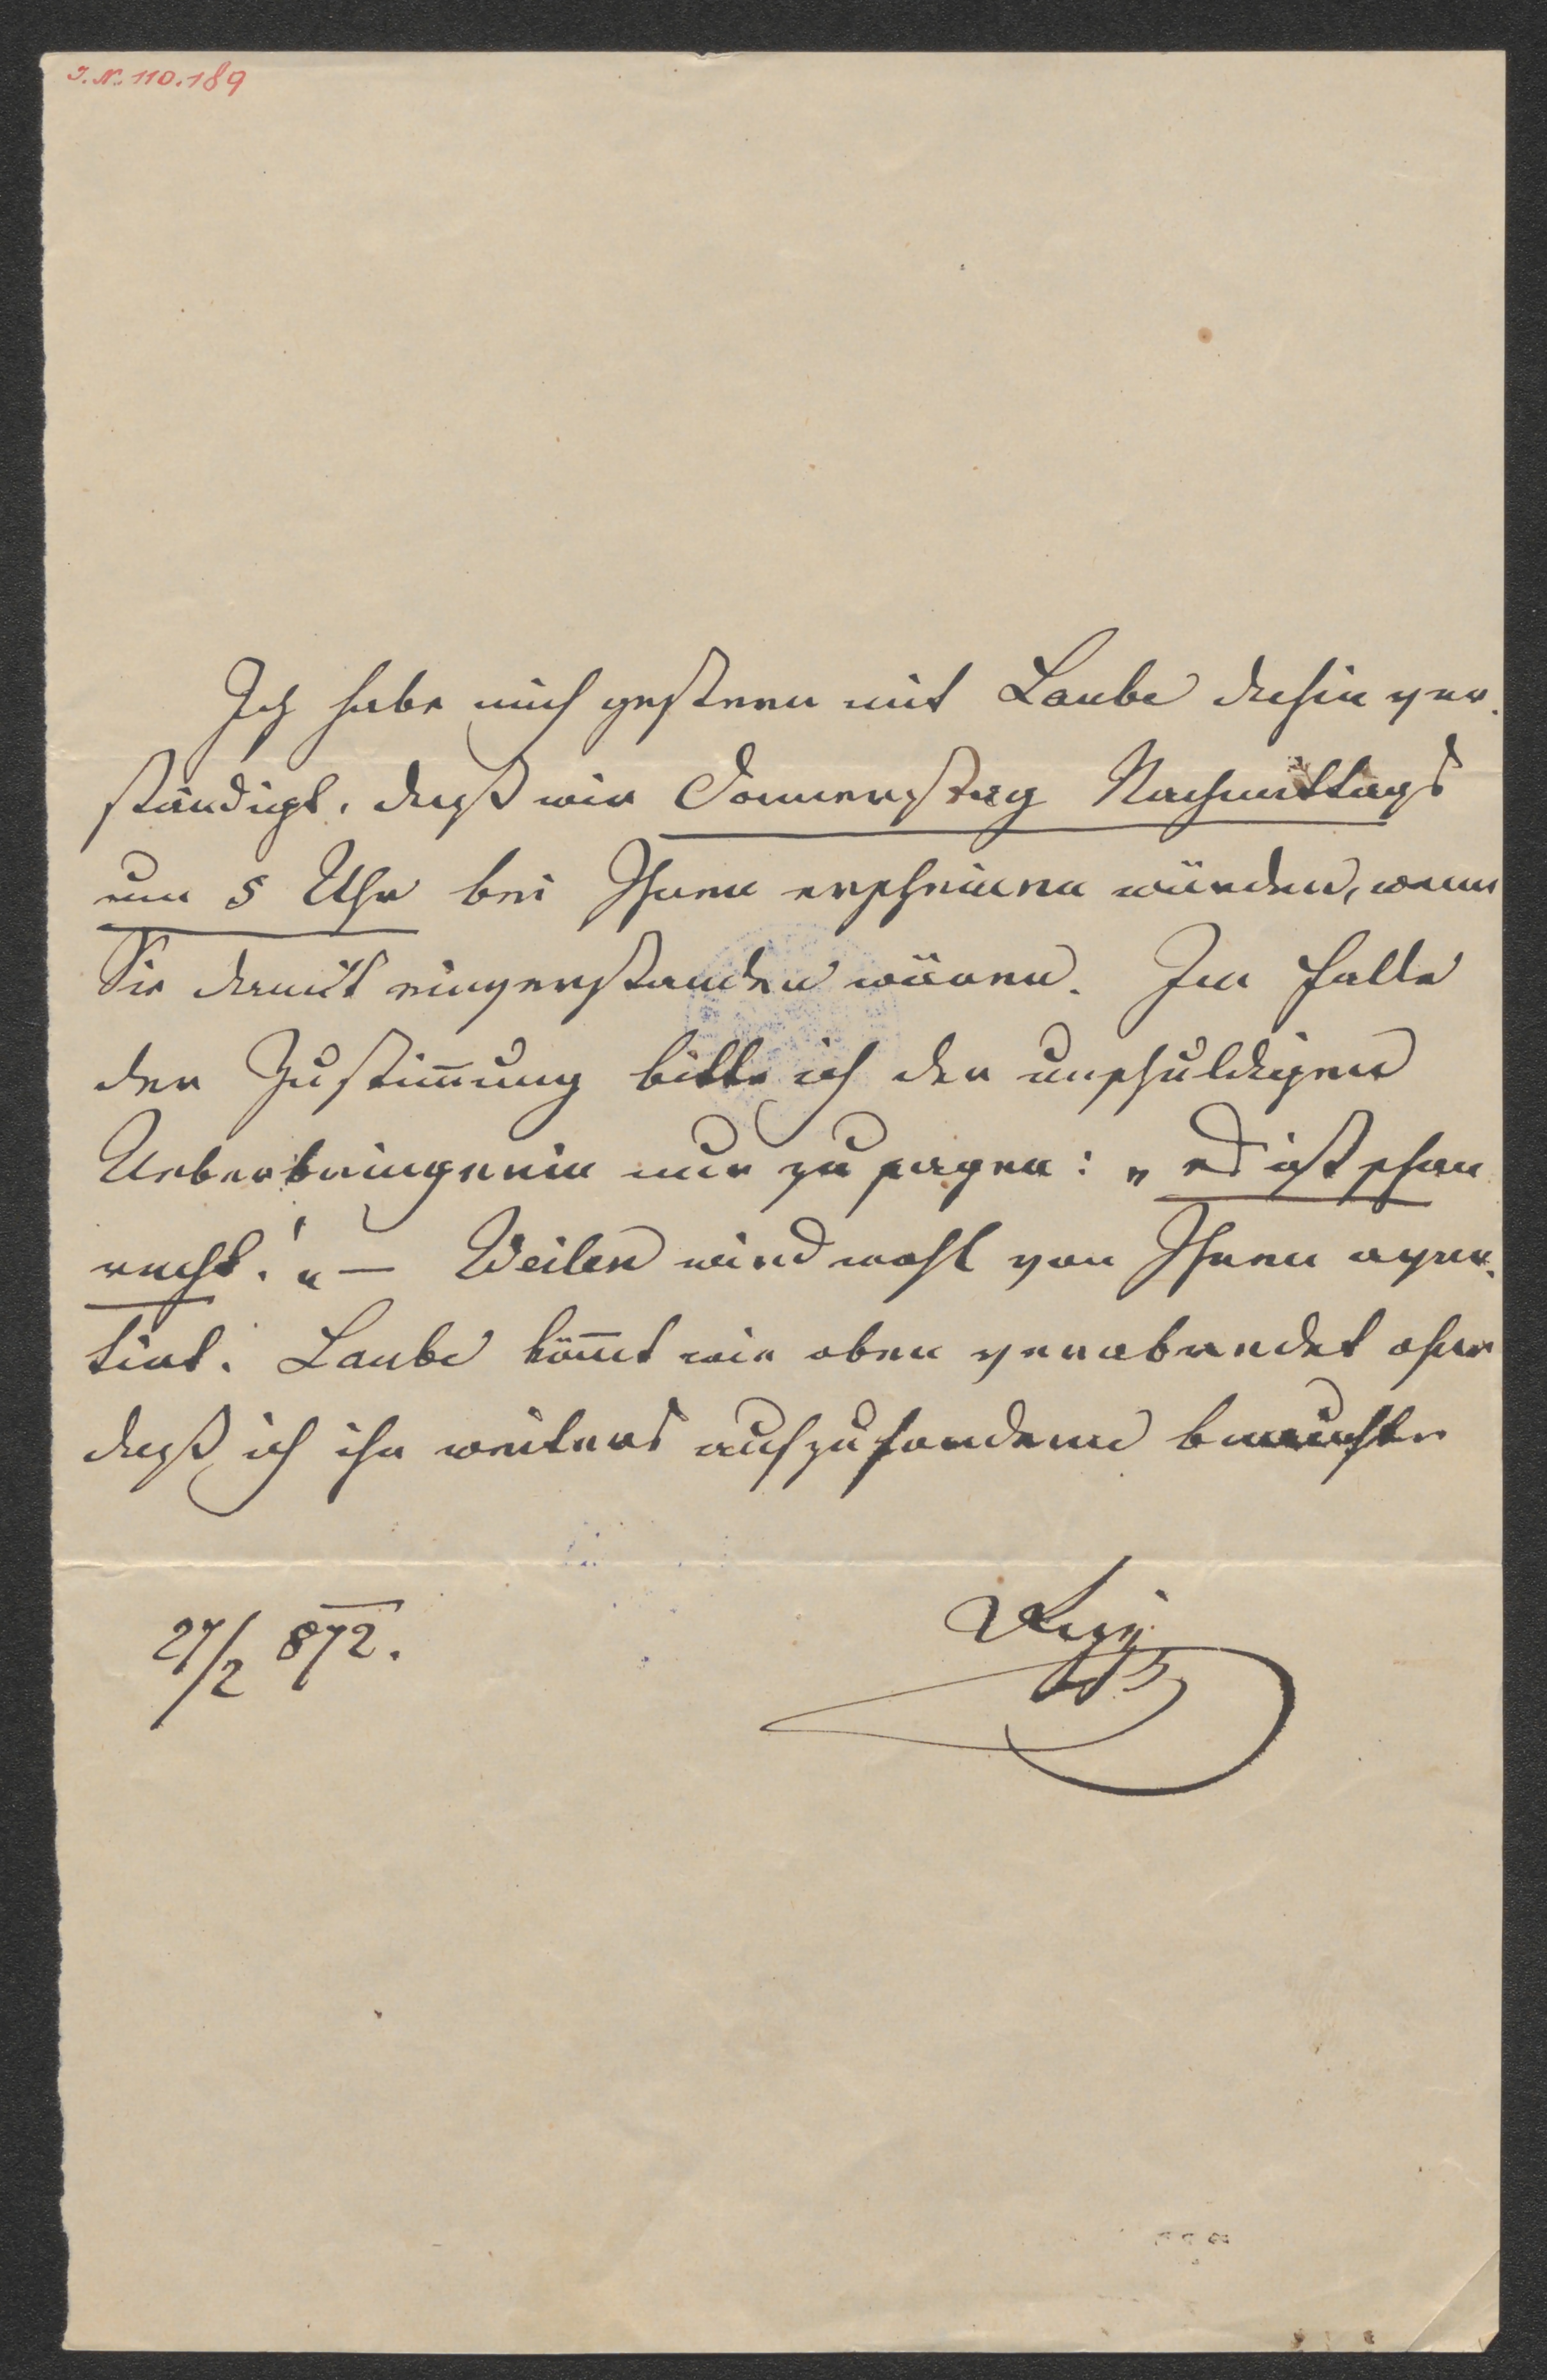 J. N. 110.189
Ich habe mich gestern mit Laube dahin ver-
ständigt, daß wir Donnerstag Nachmittags
um 5 Uhr bei Ihnen erscheinen würden, wenn
Sie damit einverstanden wären. Im Falle
der Zustimmung bitte ich der unschuldigen
Ueberbringerin nur zu sagen: „es ist schon
recht!" — Weilen wird wohl von Ihnen aver-
tirt. Laube kom̅t wie oben verabredet ohne
daß ich ihn weiters aufzufordern brauchte
27/2 872.